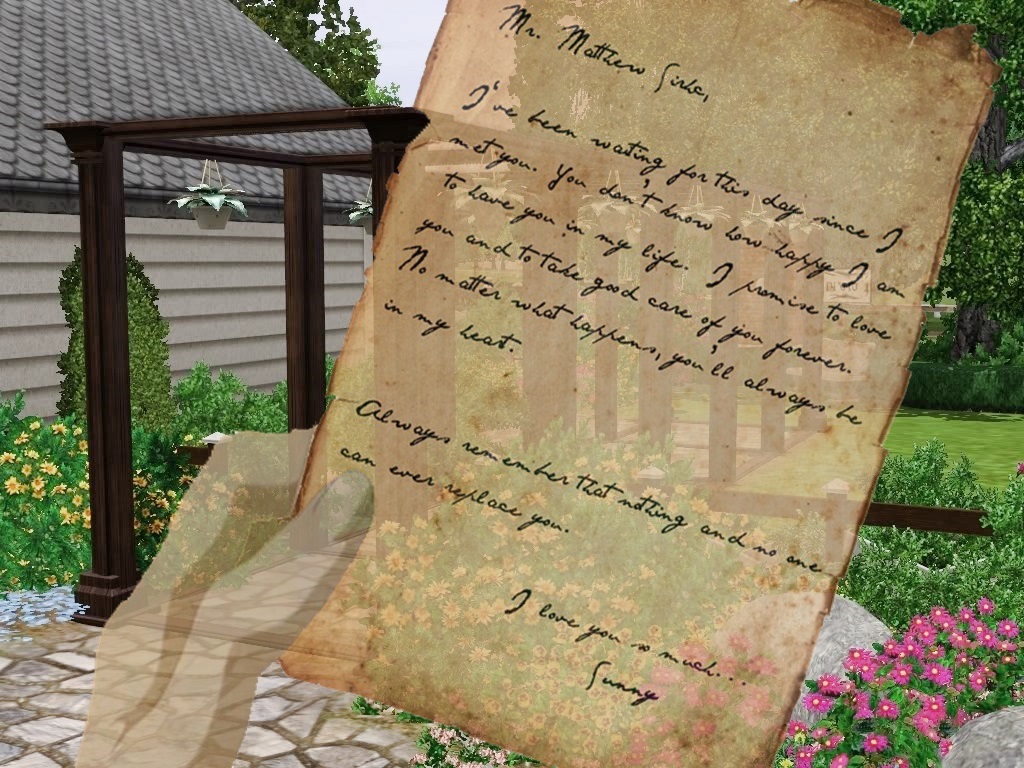 Mr. Matthew
I've been waiting for this day since I
met you. You don't know how happy I am
to have you in my life. I promise to love
you and to take good care of you forever.
No matter what happens, you'll always be
in my heart.
Always remember that nothing and no one
can ever replace you.
I love you so much...
Sunny